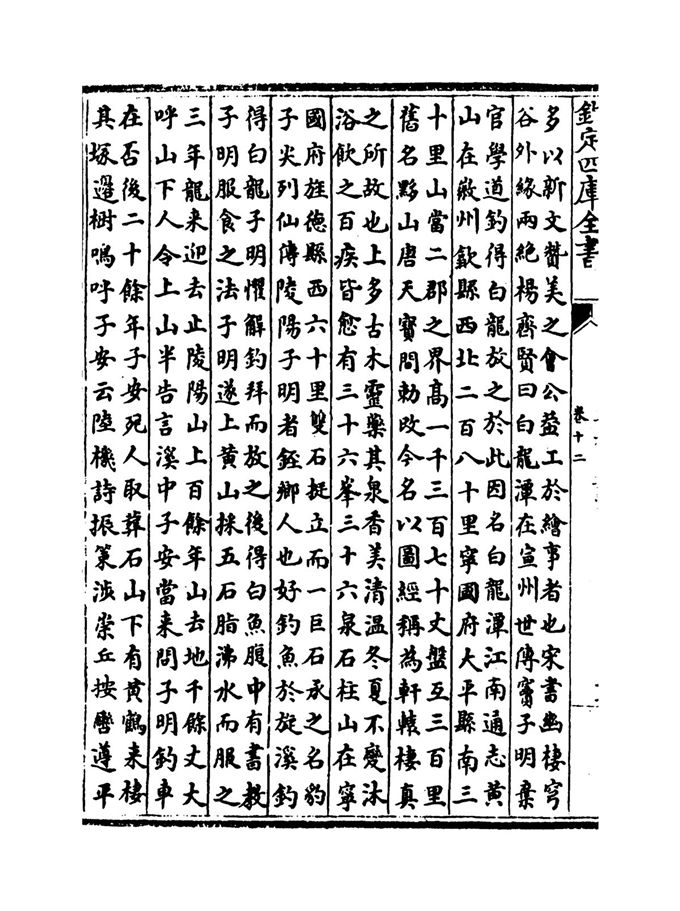 欽定四庫全書
卷十二
多以新文贊美之會公益工於繪事者也宋書幽棲穹
谷外緣兩絕楊齊賢曰白龍潭在宣州世傳竇子明棄
官學道釣得白龍放之於此因名白龍潭江南通志黃
山在徽州歙縣西北二百八十里寧國府大平縣南三
十里山當二郡之界高一千三百七十丈盤亙三百里
舊名黟山唐天寶間勅改今名以圖經稱為軒轅棲真
之所故也上多古木靈藥其泉香美清温冬夏不變沐
浴飲之百疾皆愈有三十六峯三十六泉石柱山在寧
國府旌德縣西六十里雙石挺立而一巨石承之名豹
子尖列仙傳陵陽子明者銍鄉人也好釣魚於旋溪釣
得白龍子明懼解釣拜而放之後得白魚腹中有書教
子明服食之法子明遂上黄山採五石脂沸水而服之
三年龍来迎去止陵陽山上百餘年山去地千餘丈大
呼山下人令上山半告言溪中子安當来問子明釣車
在否後二十餘年子安死人取葬石山下有黄鶴来棲
其塚邉樹鳴呼子安云陸機詩振策渉崇丘按轡遵平